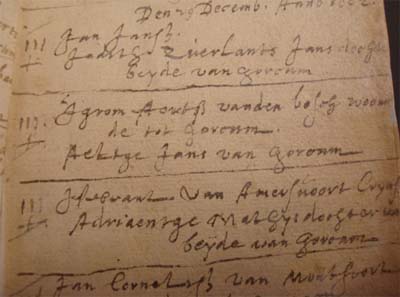 Den 29 Decemb. Anno
III Jan Jansß.
Zuerlants Jans dochter
beyde van Gorcum.
III. Aertß vanden bosch woon
de tot Gorcum.
Aeltge Jans van Gorcum
III van Amersfoort
Adriaentge Mathijs dochter
beyde van Gorcum
Jan Cornelisß van Montfoort